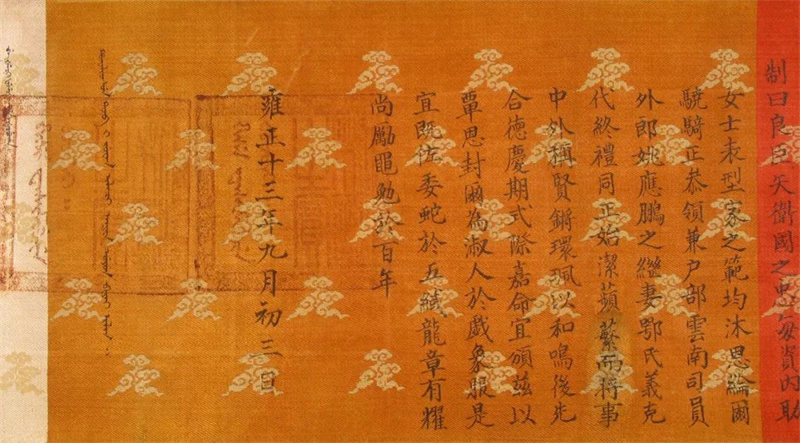 制曰良臣矢衛國之忠每資內助
女士表型家之範均沐恩綸爾
驍騎正叅領兼户部雲南司員
外郎姚應鵬之繼妻鄂氏義克
代終禮同正始潔蘋蘩而將事
中外稱賢鏘環珮以和鳴後先
合德慶期式際嘉命宜頒茲以
覃恩封爾為淑人於戲象服是
宜既佐委蛇於五緎龍章有耀
尚勵黽勉於百年
雍正十三年九月初三日